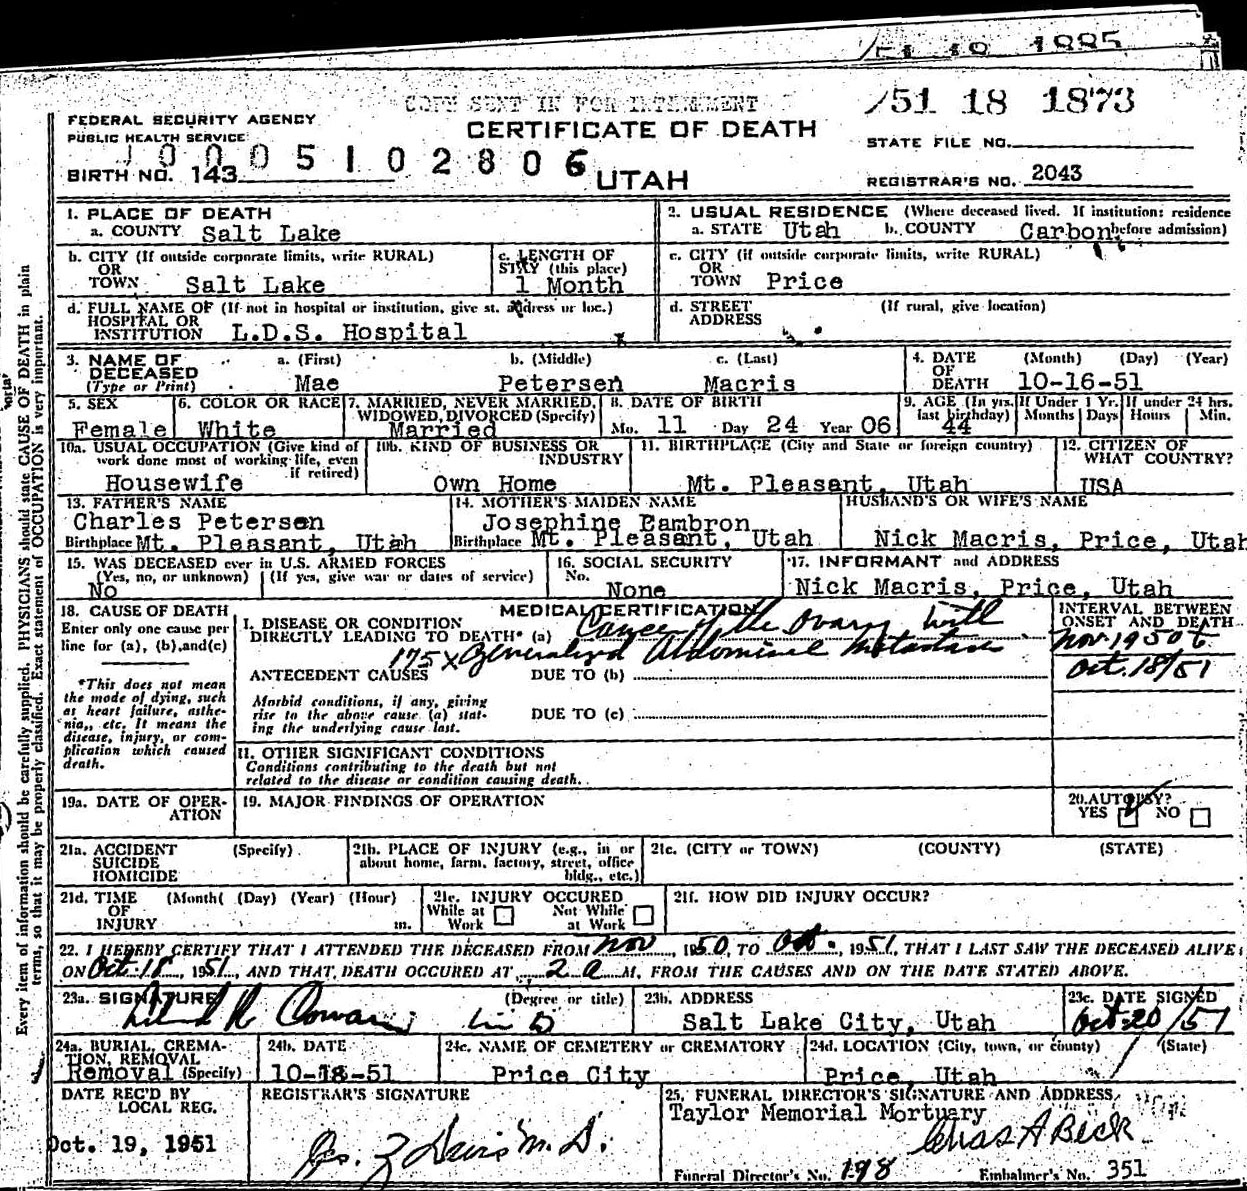 51 18 1885
COPY SENT IN FOR INTERMENT
51 18 1873
FEDERAL SECURITY AGENCY
PUBLIC HEALTH SERVICE
CERTIFICATE OF DEATH
STATE FILE NO.
J 0 0 0 5 1 0 2 8 0 6
BIRTH NO. 143
UTAH
REGISTRAR'S NO. 2043
1. PLACE OF DEATH
a. COUNTY Salt Lake
2. USUAL RESIDENCE (Where deceased lived. If institution: residence before admission)
a. STATE Utah b. COUNTY Carbon
b. CITY (If outside corporate limits, write RURAL)
OR
TOWN Salt Lake
c. LENGTH OF
STAY (this place)
1 Month
c. CITY (if outside corporate limits, write RURAL)
OR
TOWN Price
d. FULL NAME OF (If not in hospital or institution, give st. address or loc.)
HOSPITAL OR
INSTITUTION L.D.S. Hospital
d. STREET (If rural, give location)
ADDRESS
3. NAME OF DECEASED
(Type or Print)
a. (First) b. (Middle) c. (Last)
Mae Petersen Macris
4. DATE OF DEATH (Month) (Day) (Year)
10-16-51
5. SEX
Female
6. COLOR OR RACE
White
7. MARRIED, NEVER MARRIED,
WIDOWED, DIVORCED (Specify)
Married
8. DATE OF BIRTH
Mo. 11 Day 24 Year 06
9. AGE (In yrs. last birthday)
44
If Under 1 Yr. Months Days
If under 24 hrs. Hours Min.
10a. USUAL OCCUPATION (Give kind of
work done most of working life, even
if retired)
Housewife
10b. KIND OF BUSINESS OR
INDUSTRY
Own Home
11. BIRTHPLACE (City and State or foreign country)
Mt. Pleasant, Utah
12. CITIZEN OF
WHAT COUNTRY?
USA
13. FATHER'S NAME
Charles Petersen
Birthplace Mt. Pleasant, Utah
14. MOTHER'S MAIDEN NAME
Josephine Bambron
Birthplace Mt. Pleasant, Utah
HUSBAND'S OR WIFE'S NAME
Nick Macris, Price, Utah
15. WAS DECEASED ever in U.S. ARMED FORCES
(Yes, no, or unknown) (If yes, give war or dates of service)
No
16. SOCIAL SECURITY
No.
None
17. INFORMANT and ADDRESS
Nick Macris, Price, Utah
18. CAUSE OF DEATH
Enter only one cause per
line for (a), (b), and (c)
*This does not mean
the mode of dying, such
as heart failure, asthe-
nia, etc. It means the
disease, injury, or com-
plication which caused
death.
MEDICAL CERTIFICATION
I. DISEASE OR CONDITION
DIRECTLY LEADING TO DEATH* (a) Cancer of the Ovary with
175x Generalized Abdominal Metastases
ANTECEDENT CAUSES DUE TO (b)
Morbid conditions, if any, giving
rise to the above cause (a) stat-
ing the underlying cause last.
DUE TO (c)
II. OTHER SIGNIFICANT CONDITIONS
Conditions contributing to the death but not
related to the disease or condition causing death.
INTERVAL BETWEEN
ONSET AND DEATH
Nov. 1950 to
Oct. 18/51
19a. DATE OF OPER-
ATION
19. MAJOR FINDINGS OF OPERATION
20. AUTOPSY?
YES NO
21a. ACCIDENT (Specify)
SUICIDE
HOMICIDE
21b. PLACE OF INJURY (e.g., in or
about home, farm, factory, street, office
bldg., etc.)
21c. (CITY or TOWN) (COUNTY) (STATE)
21d. TIME (Month( (Day) (Year) (Hour)
OF
INJURY m.
21e. INJURY OCCURED
While at Work Not While at Work
21f. HOW DID INJURY OCCUR?
22. I HEREBY CERTIFY THAT I ATTENDED THE DECEASED FROM Nov, 1950, TO Oct., 1951, THAT I LAST SAW THE DECEASED ALIVE
ON Oct. 18, 1951, AND THAT DEATH OCCURED AT 2 a M, FROM THE CAUSES AND ON THE DATE STATED ABOVE.
23a. SIGNATURE (Degree or title)
23b. ADDRESS
Salt Lake City, Utah
23c. DATE SIGNED
Oct 20/51
24a. BURIAL, CREMA-
TION, REMOVAL
Removal (Specify)
24b. DATE
10-18-51
24c. NAME OF CEMETERY or CREMATORY
Price City
24d. LOCATION (City, town, or county) (State)
Price, Utah
DATE REC'D BY
LOCAL REG.
Oct. 19, 1951
REGISTRAR'S SIGNATURE
25. FUNERAL DIRECTOR'S SIGNATURE AND ADDRESS
Taylor Memorial Mortuary
Chas A Beck
Funeral Director's No. 198 Embalmer's No. 351
Every item of information should be carefully supplied. PHYSICIANS should state CAUSE OF DEATH in plain
terms, so that it may be properly classified. Exact statement of OCCUPATION is very important.